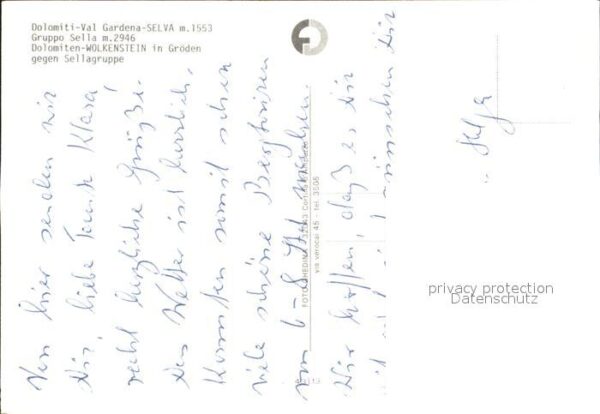 Dolomiti-Val Gardena-SELVA m.1553
Gruppo Sella m.2946
Dolomiten-WOLKENSTEIN in Gröden
gegen Sellagruppe
Von hier senden wir
Dir, liebe Tante Klara,
recht herzliche Grüße.
Das Wetter ist herrlich.
Konnten somit schon
viele schöne Bergtouren
von 6-8 Std machen.
Wir hoffen, daß es Dir
wünschen Dir
Helga
FOTO GHEDINA
via verocai 45 - tel. 3606
privacy protection
Datenschutz